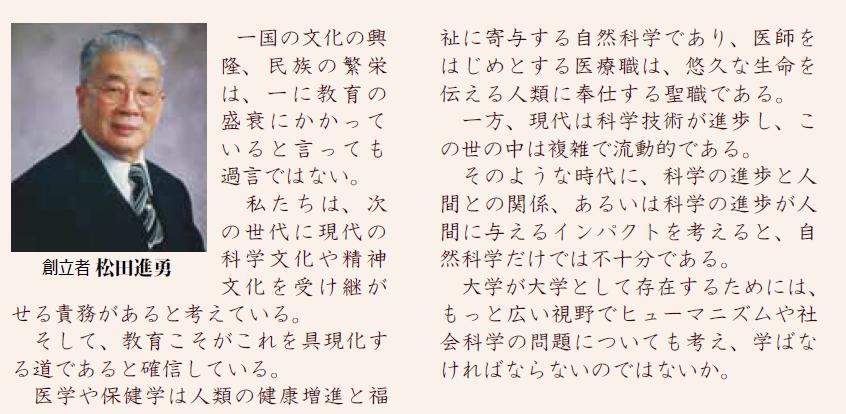 一国の文化の興
隆、民族の繁栄
は、一に教育の
盛衰にかかって
いると言っても
過言ではない。
私たちは、次
の世代に現代の
科学文化や精神
文化を受け継が
せる責務があると考えている。
そして、教育こそがこれを具現化す
る道であると確信している。
医学や保健学は人類の健康増進と福
創立者 松田進勇
祉に寄与する自然科学であり、医師を
はじめとする医療職は、悠久な生命を
伝える人類に奉仕する聖職である。
一方、現代は科学技術が進歩し、こ
の世の中は複雑で流動的である。
そのような時代に、科学の進歩と人
間との関係、あるいは科学の進歩が人
間に与えるインパクトを考えると、自
然科学だけでは不十分である。
大学が大学として存在するためには、
もっと広い視野でヒューマニズムや社
会科学の問題についても考え、学ばな
ければならないのではないか。